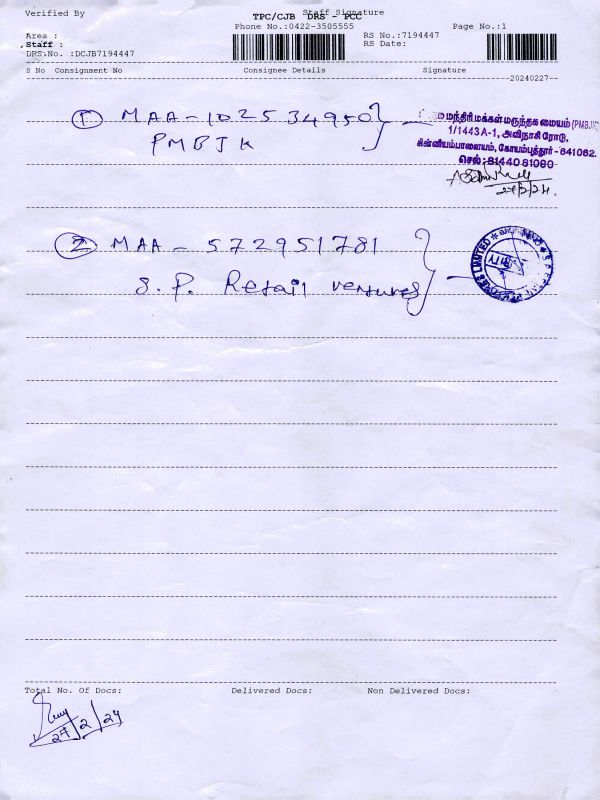 Verified By Staff Signature
TPC/CJB DRS - PCC
Phone No.:0422-3505555 Page No.:1
Area : RS No.:7194447
Staff : RS Date:
DRS.No. :DCJB7194447
S No Consignment No Consignee Details Signature
20240227
① MAA - 102534950
PMBJK
மந்திரி மக்கள் மருந்தக மையம் (PMBJK)
1/1443 A-1, அவிநாசி ரோடு,
சின்னியம்பாளையம், கோயம்புத்தூர் - 641062.
செல் : 81440 81090
27/2/24.
② MAA - 572951781
S. P. Retail ventures
LIMITED
Total No. Of Docs: Delivered Docs: Non Delivered Docs:
27/2/24